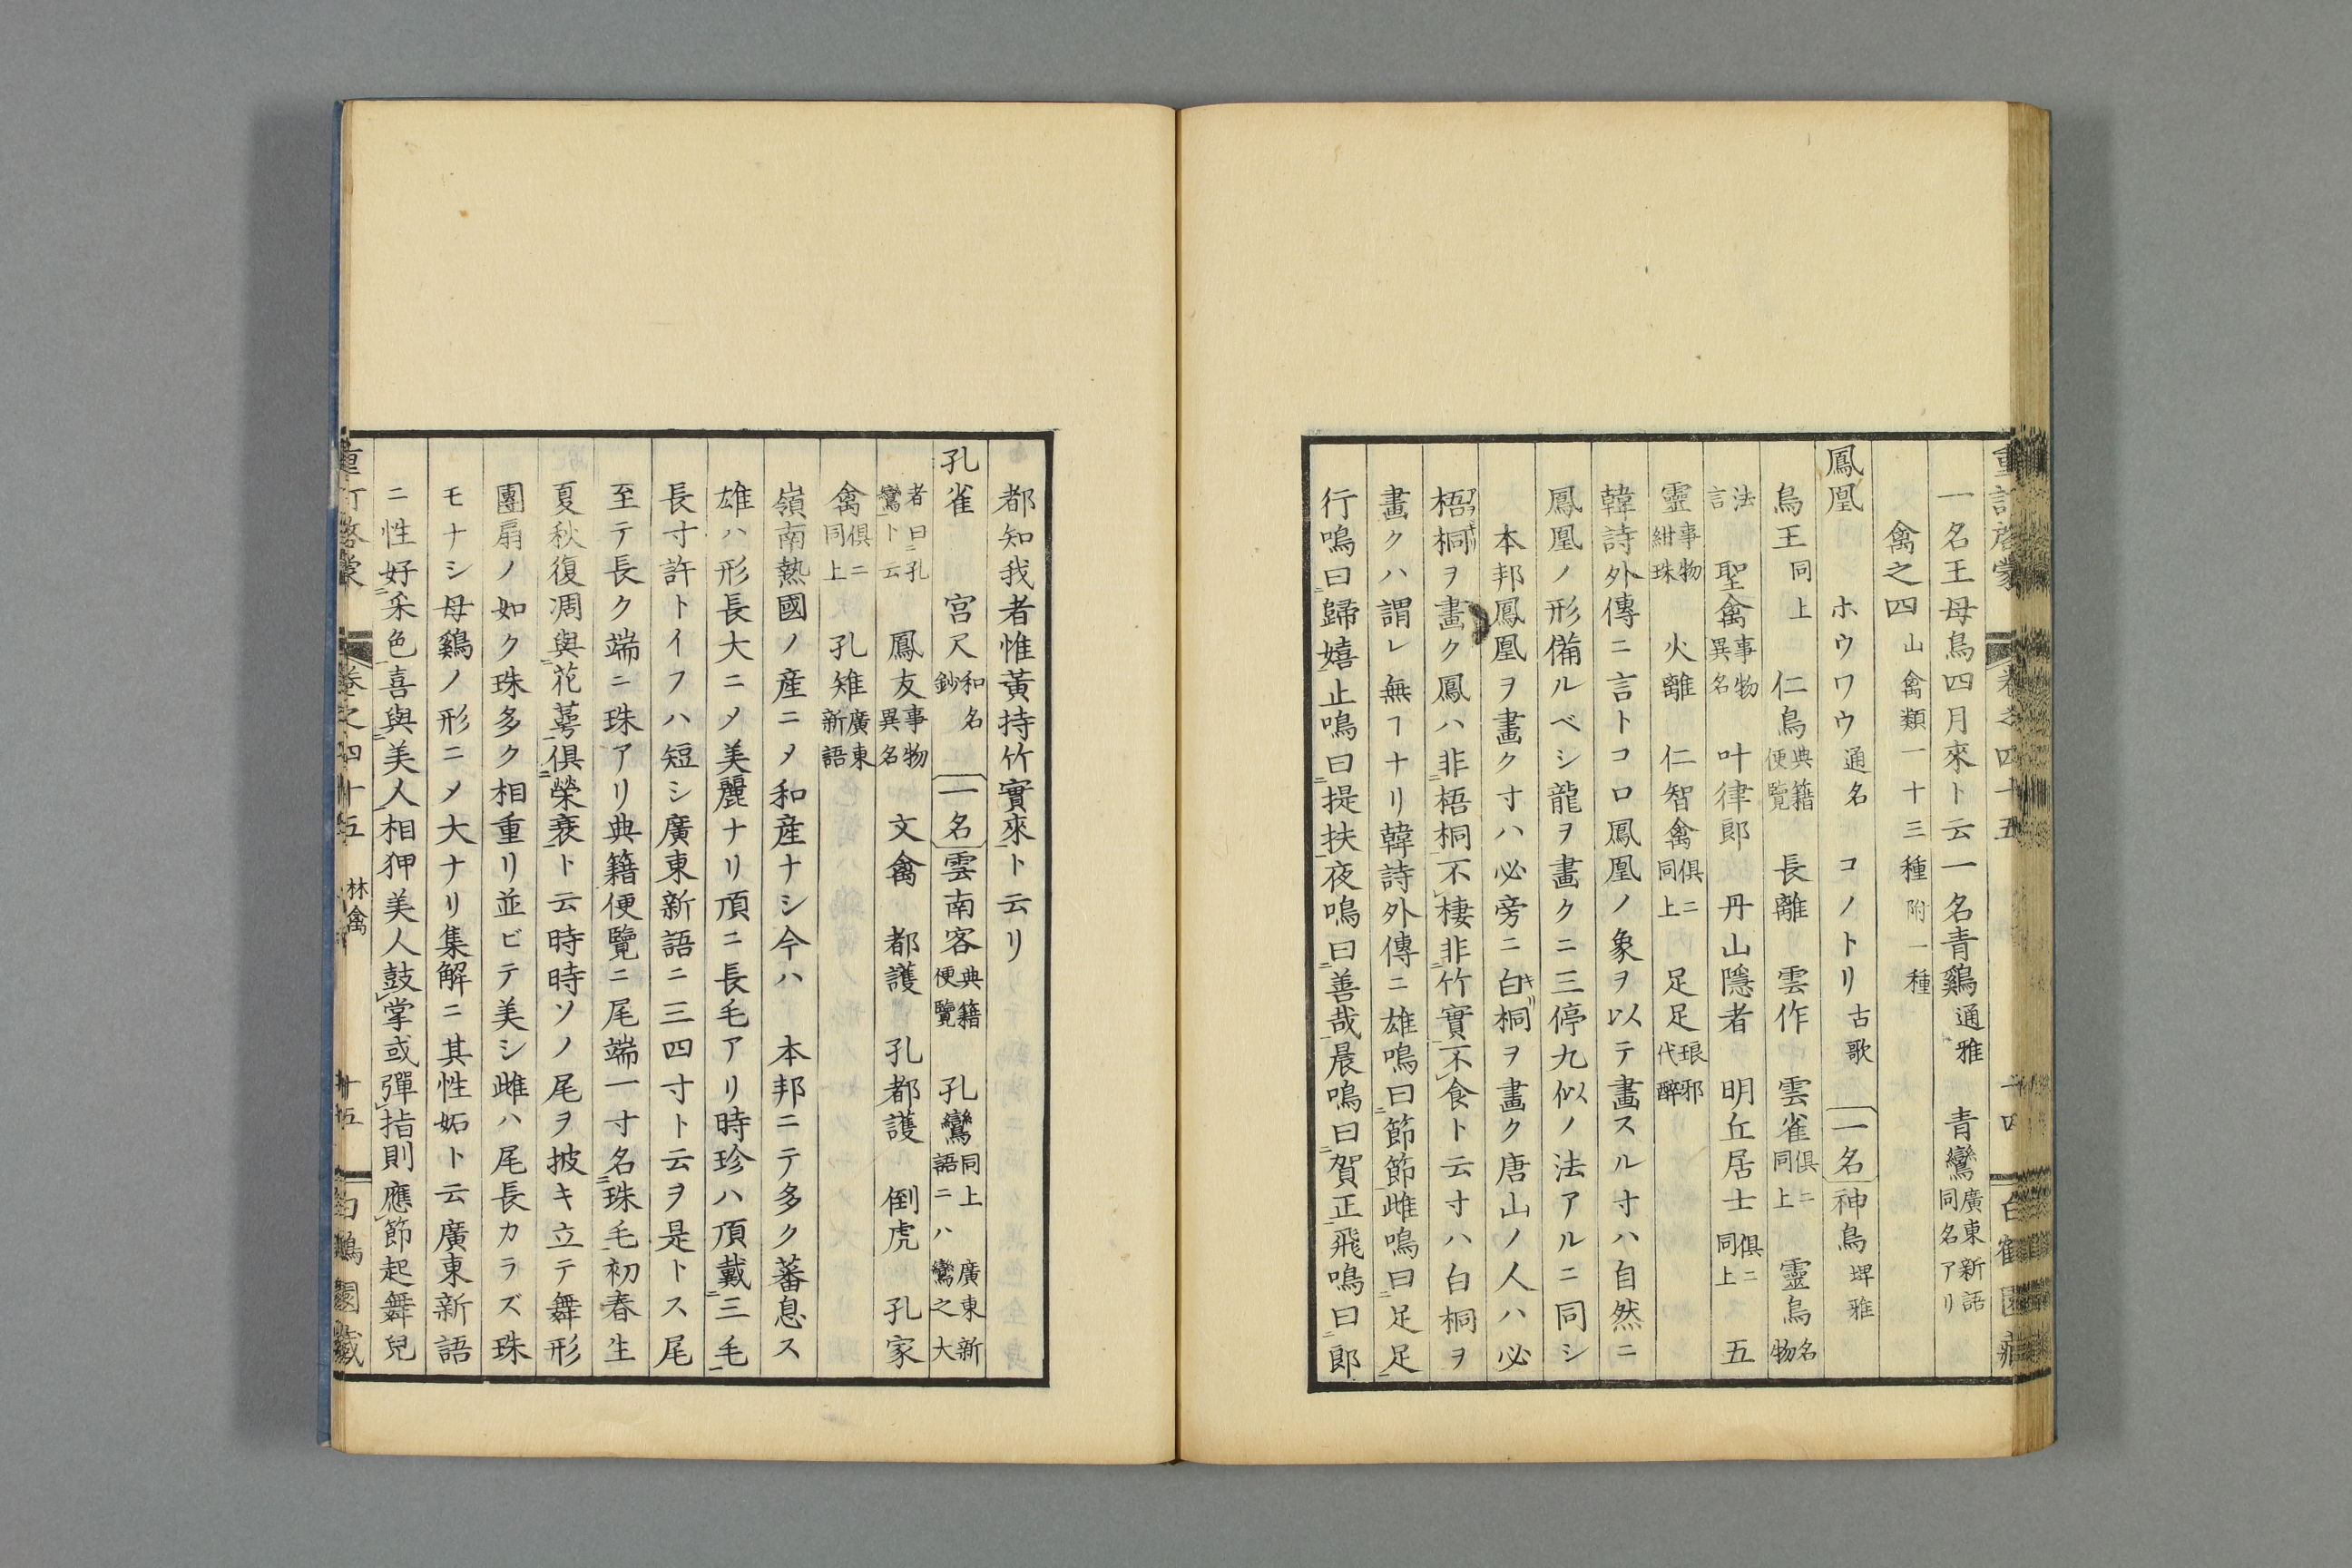 一名王母鳥四月來ト云一名青鷄通雅 青鸞廣東新語同名アリ
禽之四山禽類一十三種附一種
鳳凰 ホウワウ通名 コノトリ古歌 一名神鳥埤雅
鳥王同上 仁鳥典籍便覽 長離 雲作 雲雀俱ニ同上 靈鳥名物
法言 聖禽事物異名 叶律郎 丹山隱者 明丘居士俱ニ同上 五
靈事物紺珠 火離 仁智禽俱ニ同上 足足琅邪代醉
韓詩外傳ニ言トコロ鳳凰ノ象ヲ以テ畫スル寸ハ自然ニ
鳳凰ノ形備ルベシ龍ヲ畫クニ三停九似ノ法アルニ同シ
本邦鳳凰ヲ畫ク寸ハ必旁ニ白桐ヲ畫ク唐山ノ人ハ必
梧桐ヲ畫ク鳳ハ非梧桐不棲非竹實不食ト云寸ハ白桐ヲ
畫クハ謂レ無ヿナリ韓詩外傳ニ雄鳴曰節節雌鳴曰足足
行鳴曰歸嬉止鳴曰提扶夜鳴曰善哉晨鳴曰賀正飛鳴曰郎
都知我者惟黃持竹實來ト云リ
孔雀 宮尺和名鈔 一名雲南客典籍便覽 孔鸞同上廣東新語ニハ鸞之大
者曰孔鸞ト云 鳳友事物異名 文禽 都護 孔都護 倒虎 孔家
禽俱ニ同上 孔雉廣東新語
嶺南熱國ノ産ニメ和産ナシ今ハ 本邦ニテ多ク蕃息ス
雄ハ形長大ニメ美麗ナリ頂ニ長毛アリ時珍ハ頂戴三毛
長寸許トイフハ短シ廣東新語ニ三四寸ト云ヲ是トス尾
至テ長ク端ニ珠アリ典籍便覽ニ尾端一寸名珠毛初春生
夏秋復凋與花萼俱榮衰ト云時時ソノ尾ヲ披キ立テ舞形
團扇ノ如ク珠多ク相重リ並ビテ美シ雌ハ尾長カラズ珠
モナシ母鷄ノ形ニメ大ナリ集解ニ其性妬ト云廣東新語
ニ性好采色喜與美人相狎美人鼓掌或彈指則應節起舞兒
卷之四十五 林禽 十五